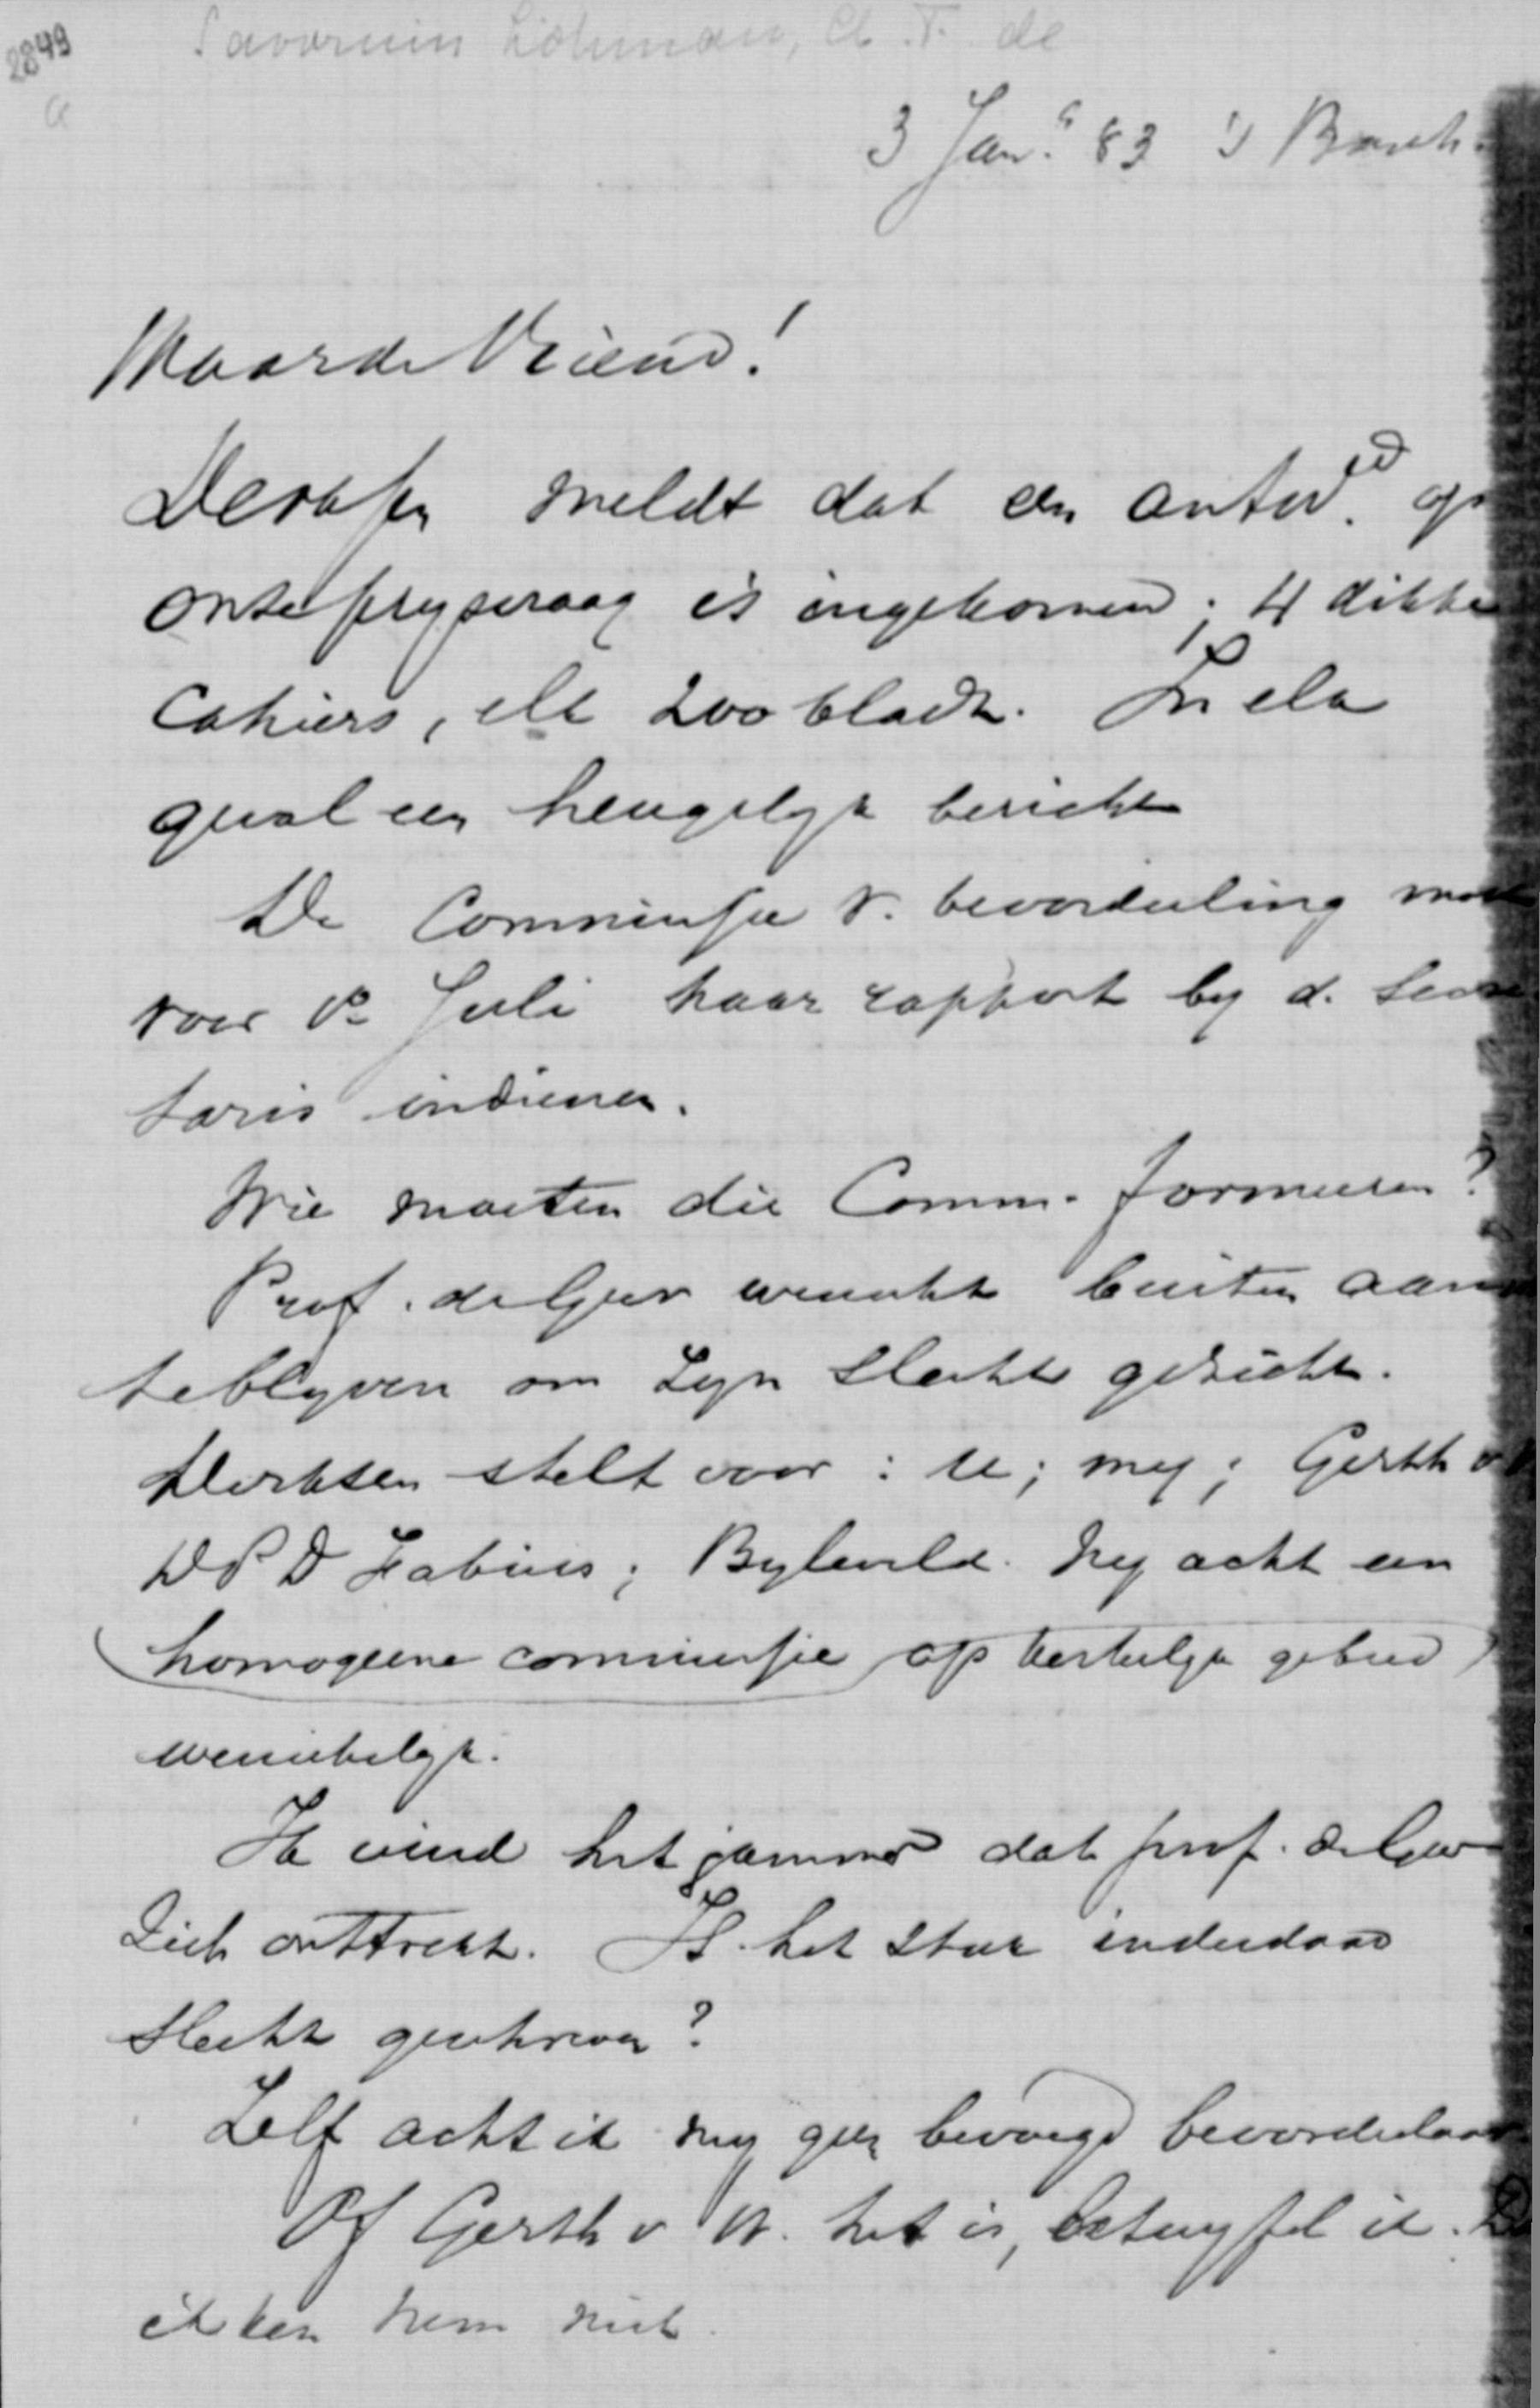 2849
a
Savornin Lohman, A. F. de
3 Jan. 83 's Bosch.
Waarde Vriend!
Derksen meldt dat een antwd. op
onze prijsvraag is ingekomen; 4 dikke
Cahiers, elk 200 bladz. In elk
geval een heugelijk bericht
De Commissie v. beoordeeling moet
voor 1o Juli haar rapport by d. Secre
taris indienen.
Wie moeten die Comm. formeeren?
Prof. de Geer wenscht buiten aan
te blijven om zijn slecht gezicht.
Derksen stelt voor: U; mij; Gerth v W
D P D Fabius; Byleveld. Hij acht een
homogeene commissie op kerkelijk gebied
wenschelijk.
Ik vind het jammer dat prof. de Geer
zich onttrekt. Is het stuk inderdaad
slecht geschreven?
Zelf acht ik mij geen bevoegd beoordeelaar
Of Gerth v W. het is, betwijfel ik.
ik ken hem niet.